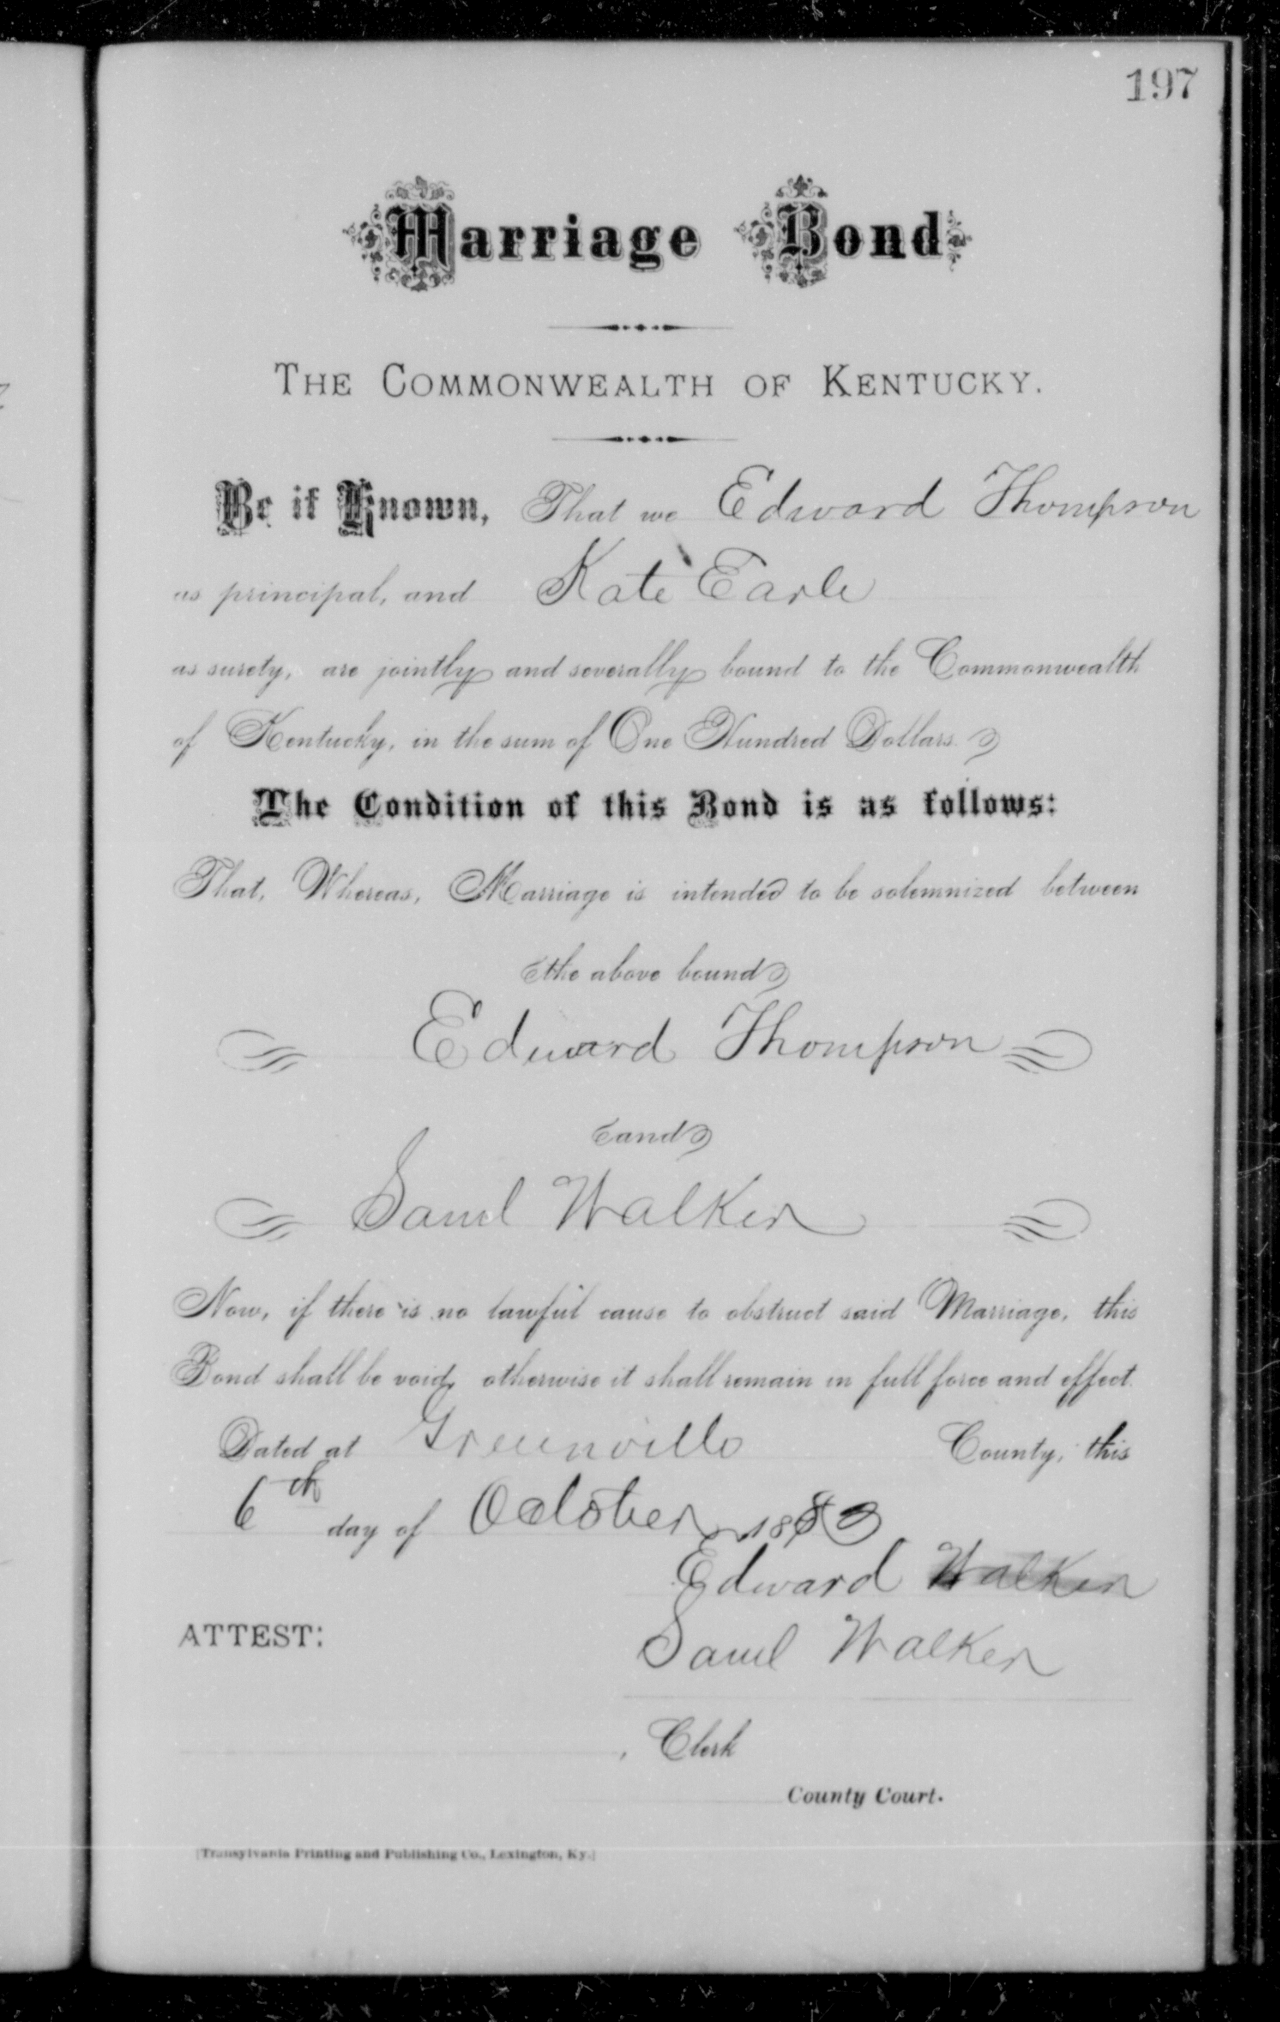 197
Marriage Bond
THE COMMONWEALTH OF KENTUCKY.
Be it Known, That we Edward Thompson
as principal, and Kate Earle
as surety, are jointly and severally bound to the Commonwealth
of Kentucky, in the sum of One Hundred Dollars.
The Condition of this Bond is as follows:
That, Whereas, Marriage is intended to be solemnized between
the above bound
Edward Thompson
and
Saml Walker
Now, if there is no lawful cause to obstruct said Marriage, this
Bond shall be void, otherwise it shall remain in full force and effect.
Dated at Greenville County, this
6th day of October 1883
Edward Walker
ATTEST:
Saml Walker
, Clerk
County Court.
[Transylvania Printing and Publishing Co., Lexington, Ky.]